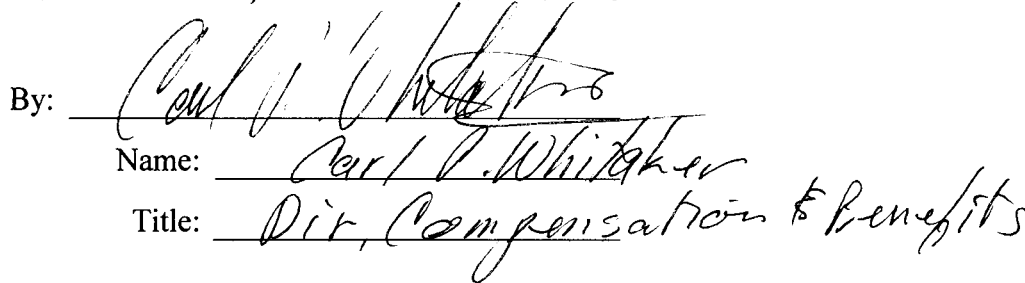 By: Carl V. Whitaker
Name: Carl V. Whitaker
Title: Dir, Compensation & Benefits